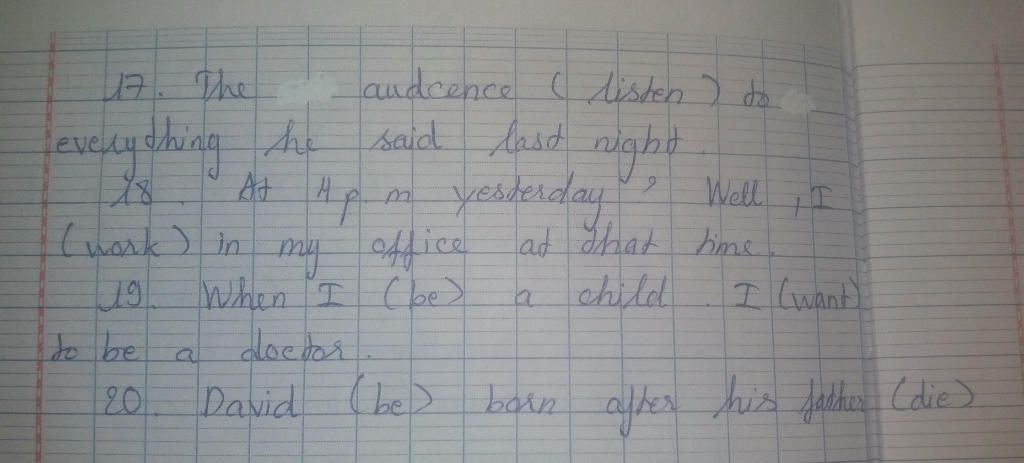 17. The audcence (listen) to
everything he said last night.
18. At 4 p.m yesterday? Well, I
(work) in my office at that time.
19. When I (be) a child. I (want)
to be a doctor.
20. David (be) born after his father (die)